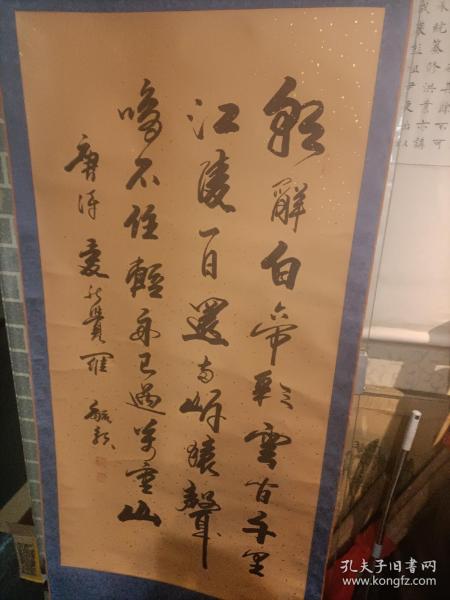 朝辭白帝彩雲間千里
江陵一日還兩岸猿聲
啼不住輕舟已過萬重山
唐詩 愛新覺羅
孔夫子旧书网
www.kongfz.com